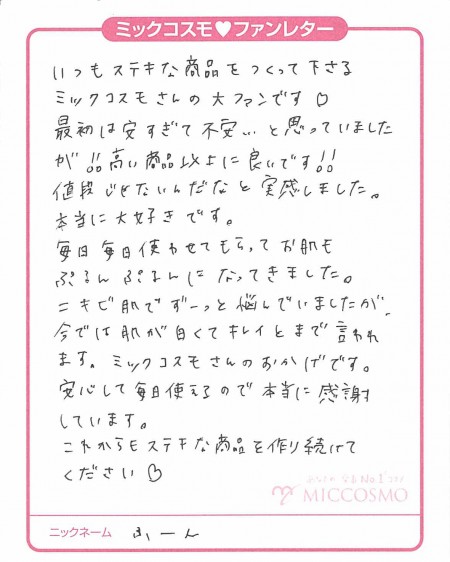 ミックコスモ♥ファンレター
いつもステキな商品をつくって下さる
ミックコスモさんの大ファンです♡
最初は安すぎて不安いと思っていました
が!!高い商品以上に良いです!!
値段じゃないんだなと実感しました。
本当に大好きです。
毎日毎日使わせてもらってお肌も
ぷるんぷるんになってきました。
ニキビ肌でずーっと悩んでいましたが、
今では肌が白くてキレイとまで言われ
ます。ミックコスモさんのおかげです。
安心して毎日使えるので本当に感謝
しています。
これからもステキな商品を作り続けて
ください♡
MICCOSMO
ニックネーム ふーん